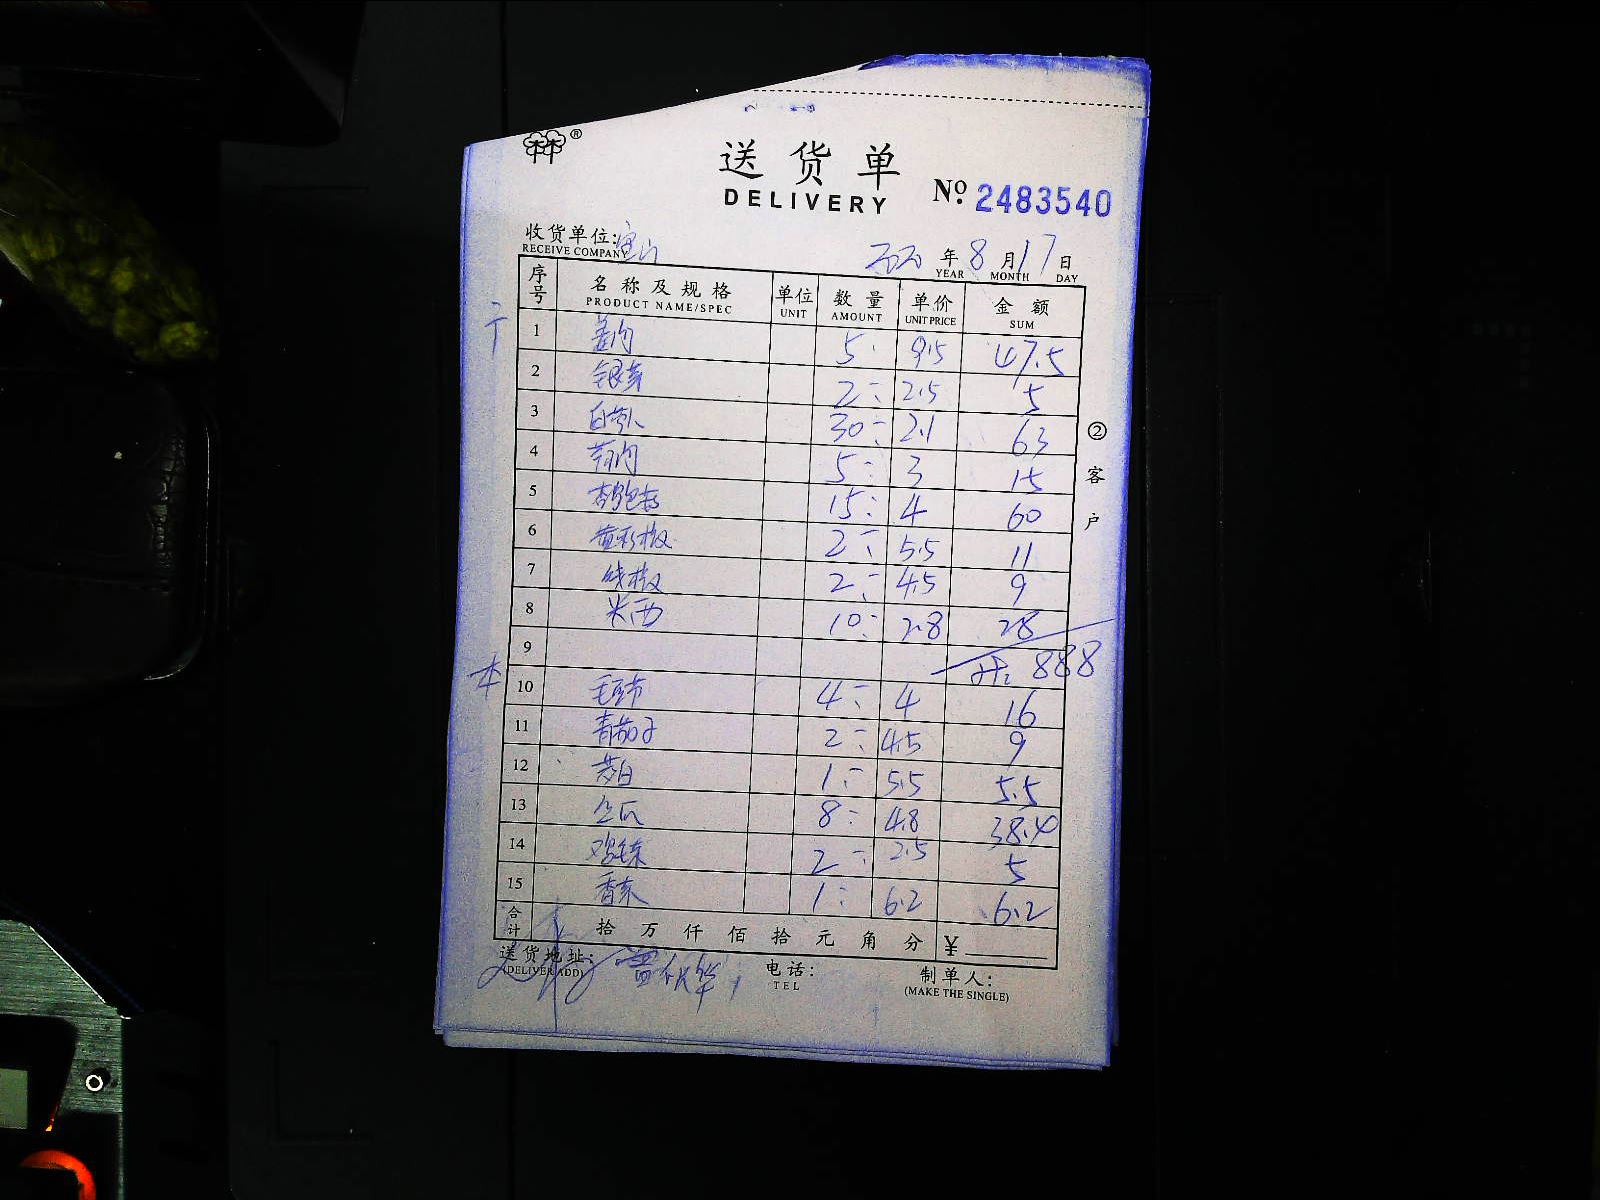 送货单
DELIVERY
No. 2483540
收货单位: 宝山
RECEIVE COMPANY
年 8 月 17 日
YEAR MONTH DAY
序号 名称及规格 单位 数量 单价 金额
PRODUCT NAME/SPEC UNIT AMOUNT UNIT PRICE SUM
1 姜肉 5 9.5 47.5
2 银芽 2 2.5 5
3 白萝卜 30 2.1 63
4 5 3 15
5 杏鲍菇 15 4 60
6 黄彩椒 2 5.5 11
7 线椒 2 4.5 9
8 米西 10 2.8 28
9 888
10 毛豆节 4 4 16
11 青茄子 2 4.5 9
12 茭白 1 5.5 5.5
13 8 4.8 38.4
14 2 2.5 5
15 香菜 1 6.2 6.2
合计 拾 万 仟 佰 拾 元 角 分 ¥
送货地址:
(DELIVER ADD)
电话:
TEL
制单人:
(MAKE THE SINGLE)
②客户